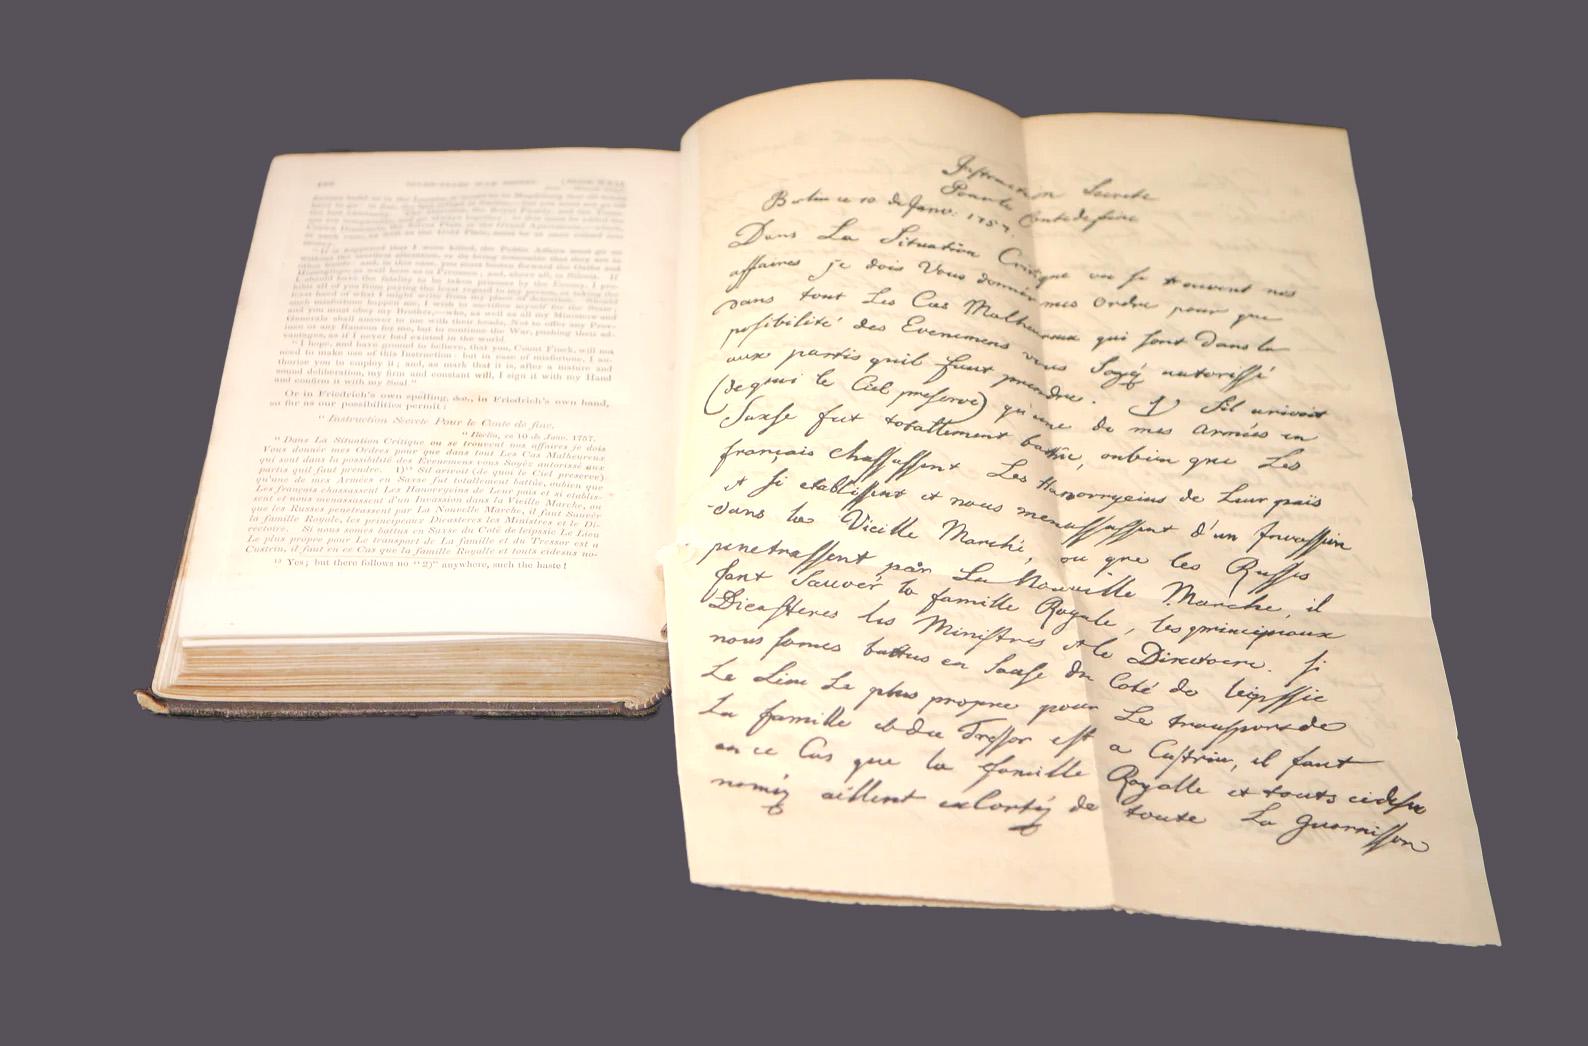 "It is supposed that I were killed, the Public Affairs must go on
without the smallest alteration, or its being noticeable that they are in
other hands: and, in this case, you must hasten forward the Oaths and
Homagings, as well here as in Preussen; and, above all, in Silesia. If
I should have the fatality to be taken prisoner by the Enemy, I pro-
hibit all of you from paying the least regard to my person, or taking the
least heed of what I might write from my place of detention. Should
such misfortune happen me, I wish to sacrifice myself for the State;
and you must obey my Brother,—who, as well as all my Ministers and
Generals shall answer to me with their heads, Not to offer any Prov-
ince or any Ransom for me, but to continue the War, pushing their ad-
vantages, as if I never had existed in the world.
"I hope, and have ground to believe, that you, Count Finck, will not
need to make use of this Instruction: but in case of misfortune, I au-
thorise you to employ it; and, as mark that it is, after a mature and
sound deliberation, my firm and constant will, I sign it with my Hand
and confirm it with my Seal."
Or in Friedrich's own spelling, &c., in Friedrich's own hand,
so far as our possibilities permit:
"Instruction Secrete Pour le Conte de fine.
"Berlin, ce 10 de Janv. 1757.
"Dans La Situation Critique ou se trouvent nos affaires je dois
Vous donnér mes Ordres pour que dans tout Les Cas Malheureux
qui sont dans la possibilité des Evenemens vous Soyéz autorissé aux
partis quil faut prendre. 1)¹³ Sil arivoit (de quoi le Ciel preserve)
qu'une de mes Armées en Saxse fut totallement battûe, oubien que
Les français chassassent Les Hanovryeins de Leur païs et si etablis-
sent et nous menassassent d'un Invassion dans la Vieille Marche, ou
que les Russes penetrassent par La Nouvelle Marche, il faut Sauvér
la famille Royale, les principeaux Dicasteres les Ministres et le Di-
rectoire. Si nous somes battus en Saxse du Coté de leipssic Le Lieu
Le plus propre pour Le transport de La famille et du Tressor est a
Custrin, il faut en ce Cas que la famille Royalle et touts cidesus no-
¹³ Yes; but there follows no "2)" anywhere, such the haste!
Instruction Secrete
Pour le Conte de finc
Berlin ce 10 de Janv: 1757.
Dans La Situation Critique ou se trouvent nos
affaires je dois Vous donnér mes Ordre pour que
dans tout Les Cas Malheureux qui sont dans la
possibilité des Evenemens vous Soyéz autorissé
aux partis quil faut prendre. 1) Sil arivoit
(de quoi le Ciel preserve) qu'une de mes Armées en
Saxse fut totallement battue, oubien que Les
français chassassent Les Hanovryeins de Leur païs
et si etablissent et nous menassassent d'un Invassion
dans la Vieille Marche, ou que les Russes
penetrassent par La Nouvelle Marche, il
faut Sauvér la famille Royale, les principeaux
Dicasteres les Ministres et le Directoire. Si
nous somes battus en Saxse du Coté de leipssic
Le Lieu Le plus propre pour Le transport de
La famille et du Tressor est a Custrin, il faut
en ce Cas que la famille Royalle et touts cidesus
noméz aillent esCortéz de toute La Guarnisson